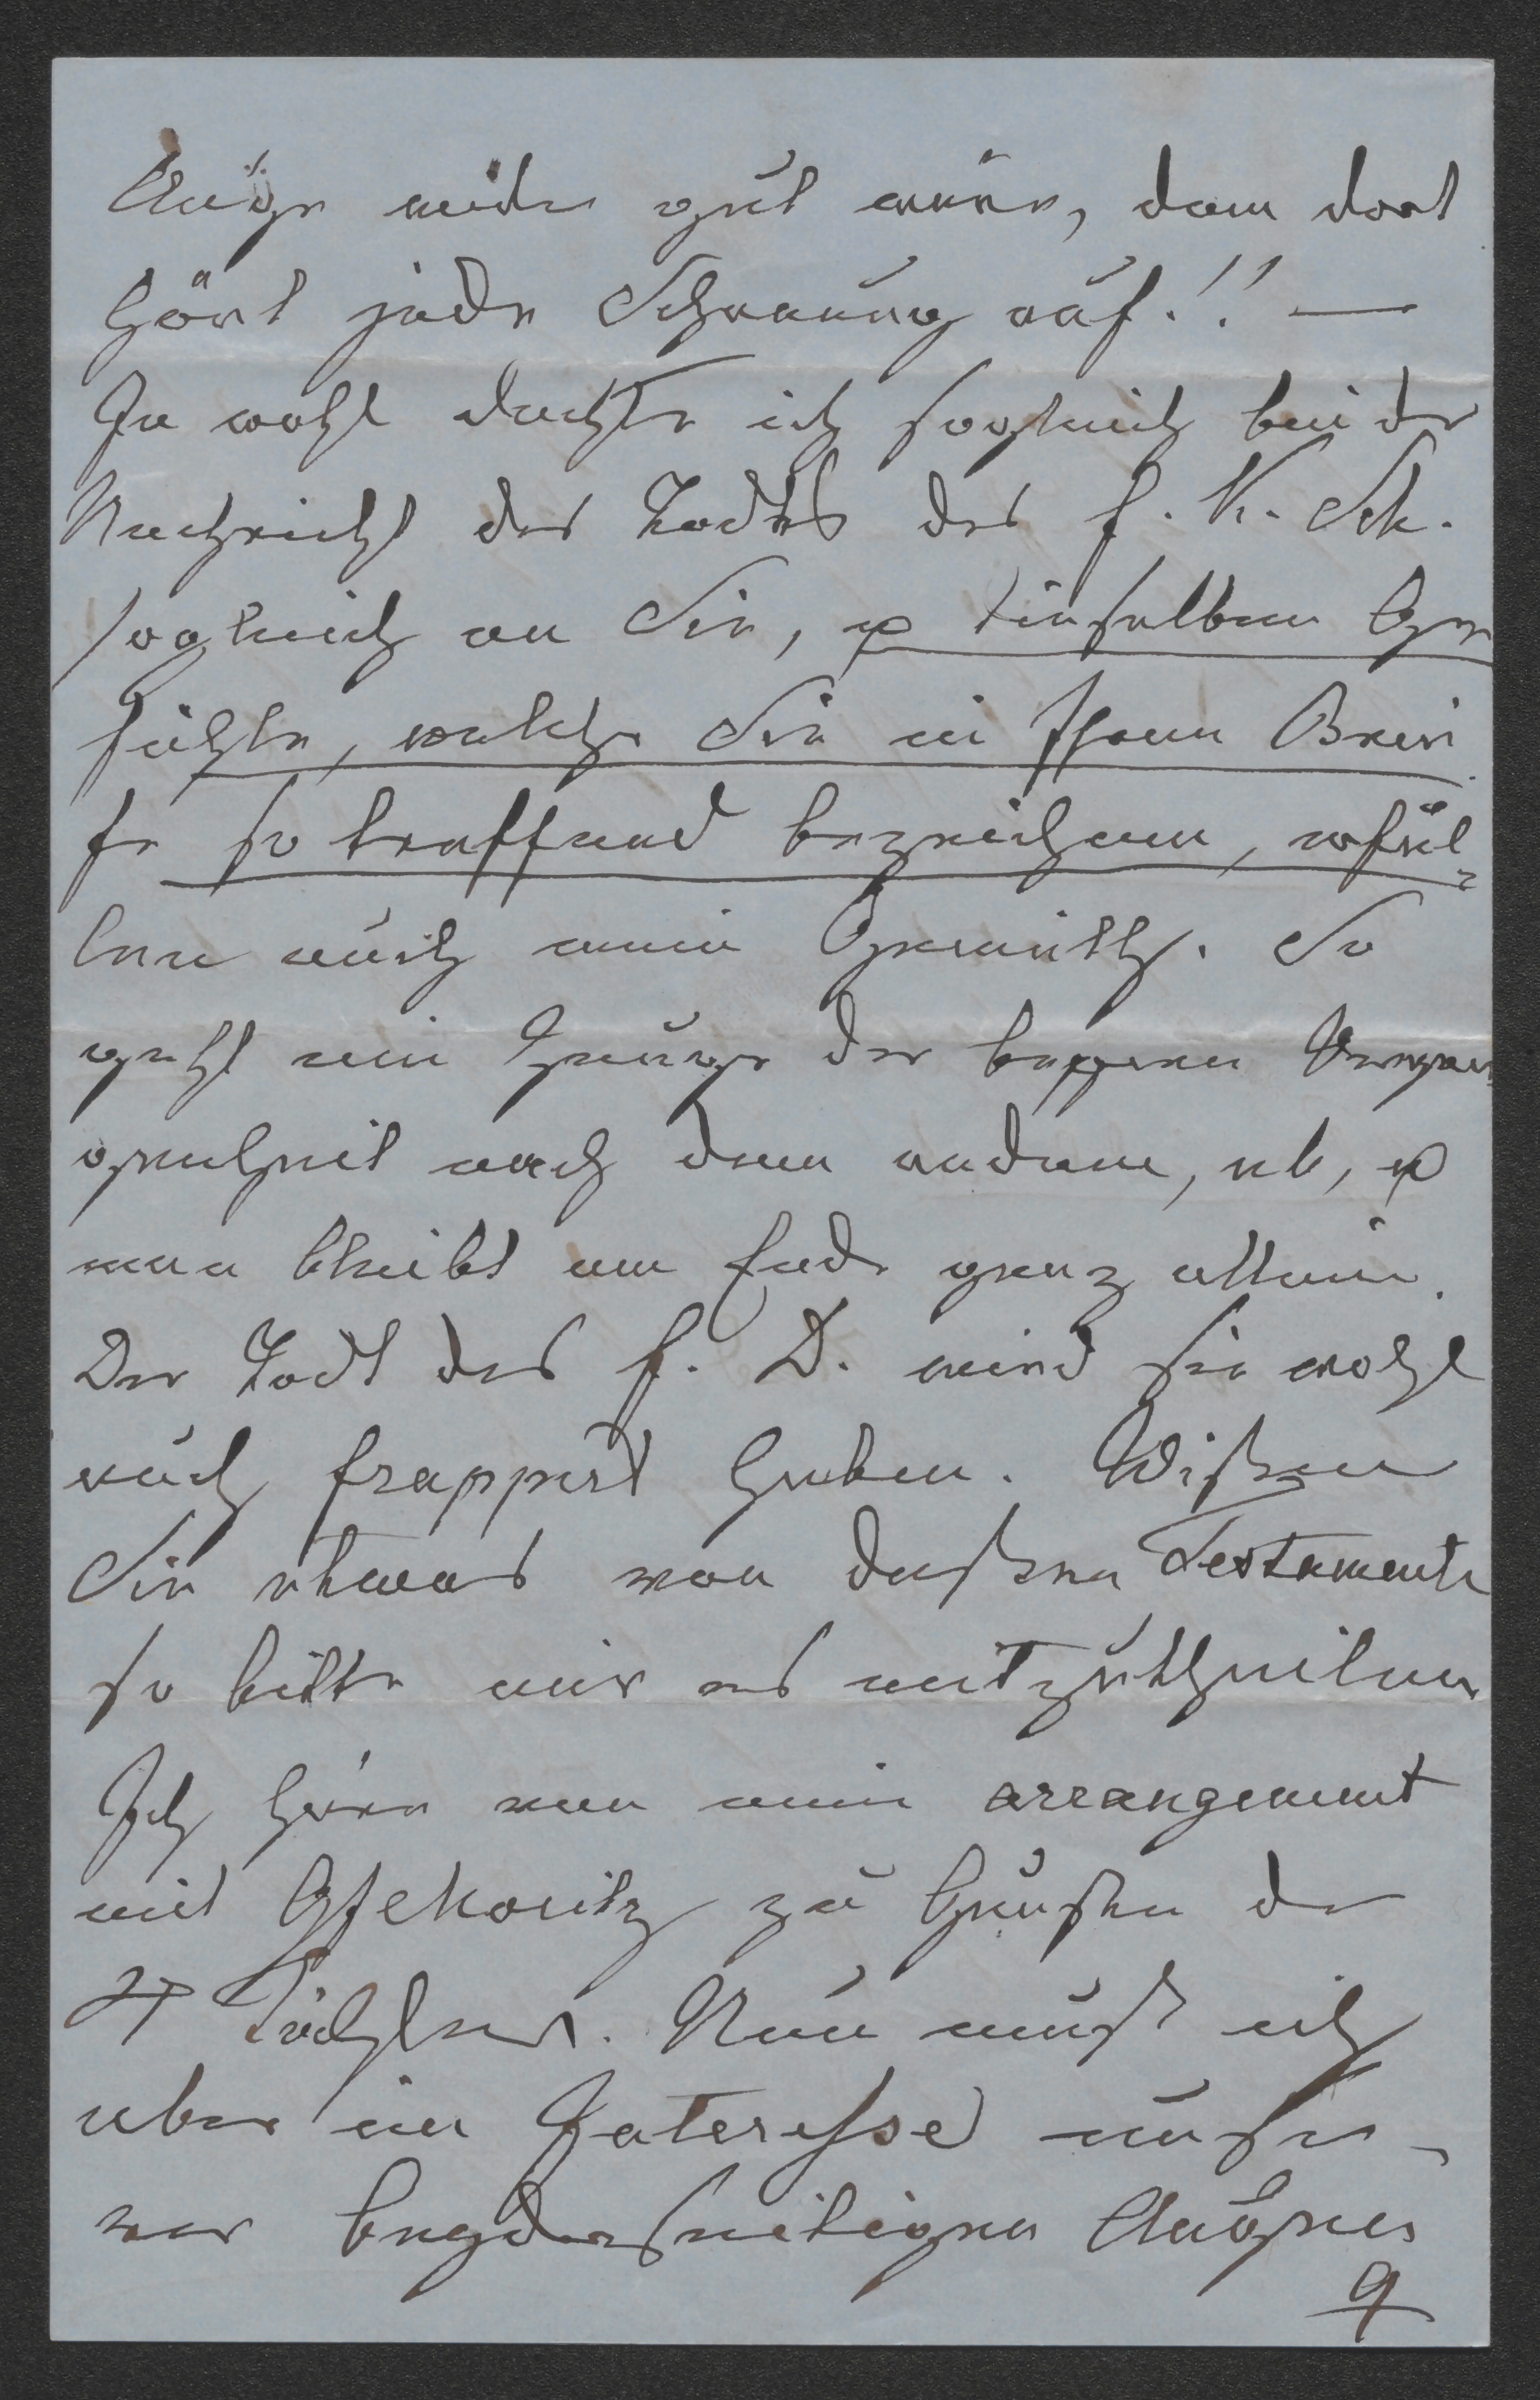 Auge wieder gut wäre, denn dort
hört jede Schonung auf!! —
Ja wohl dachte ich sogleich bei der
Nachricht des Todtes des f. K. Sch.
sogleich an Sie, u dieselben Ge
fühle, welche Sie in Ihrem Brie
fe so treffend bezeichnen, erfül-
len auch mein Gemüth. So
geht ein Zeuge der besseren Vergan
genheit nach dem andern, ab, u
man bleibt am Ende ganz allein.
Der Todt des f. D. wird sie wohl
auch frappert haben. Wißen
Sie etwas von deßen Testamente
so bitte mir es mitzutheilen
Ich höre von mein arrangement
mit zu Gunsten der
4 Töchter. Nun muß ich
aber im Interesse unse-
rer beyderseitigen Augen
9